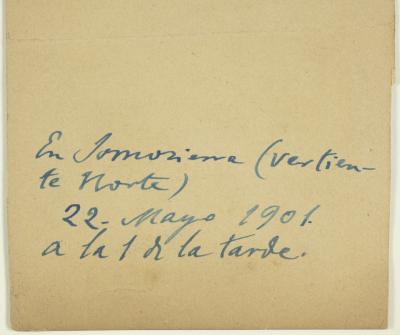 En Somosierra (vertien-
te Norte)
22- Mayo 1901.
a la 1 de la tarde.